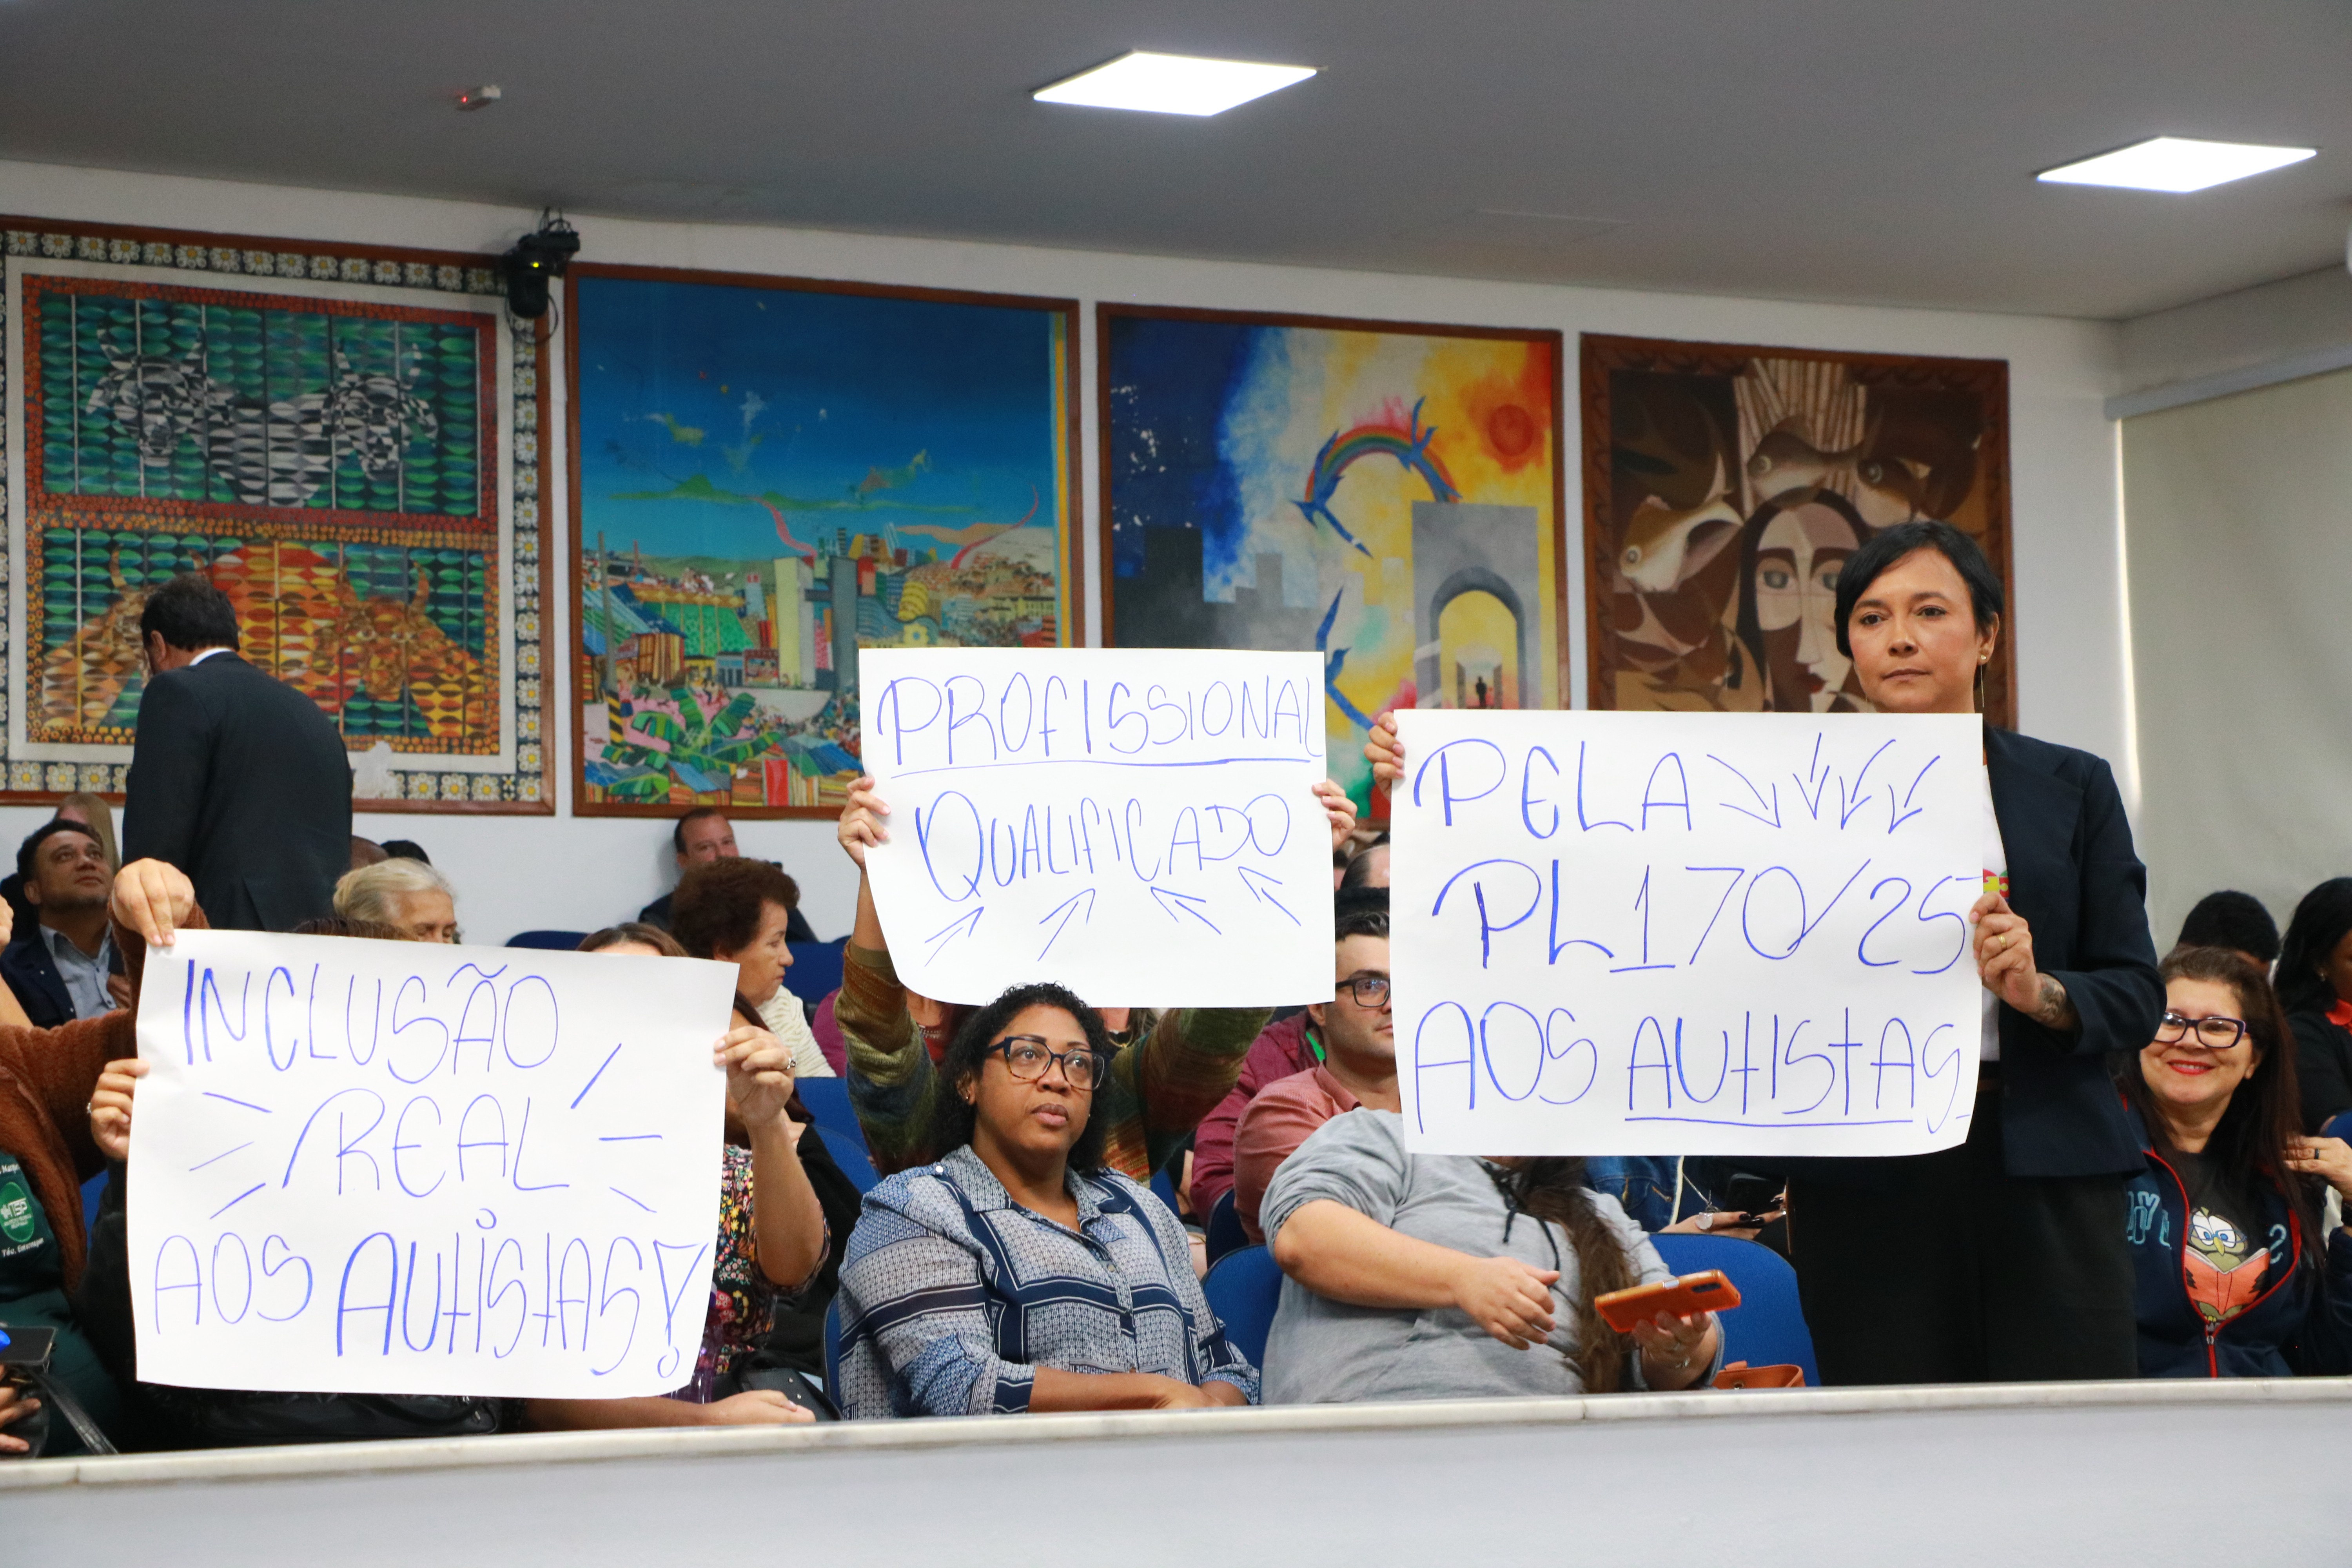 INCLUSÃO
REAL
AOS AUtIStAS!
PROfISSIONAL
QUALIFICADO
PELA
PL 170/25
AOS AUtIStAS
TSP